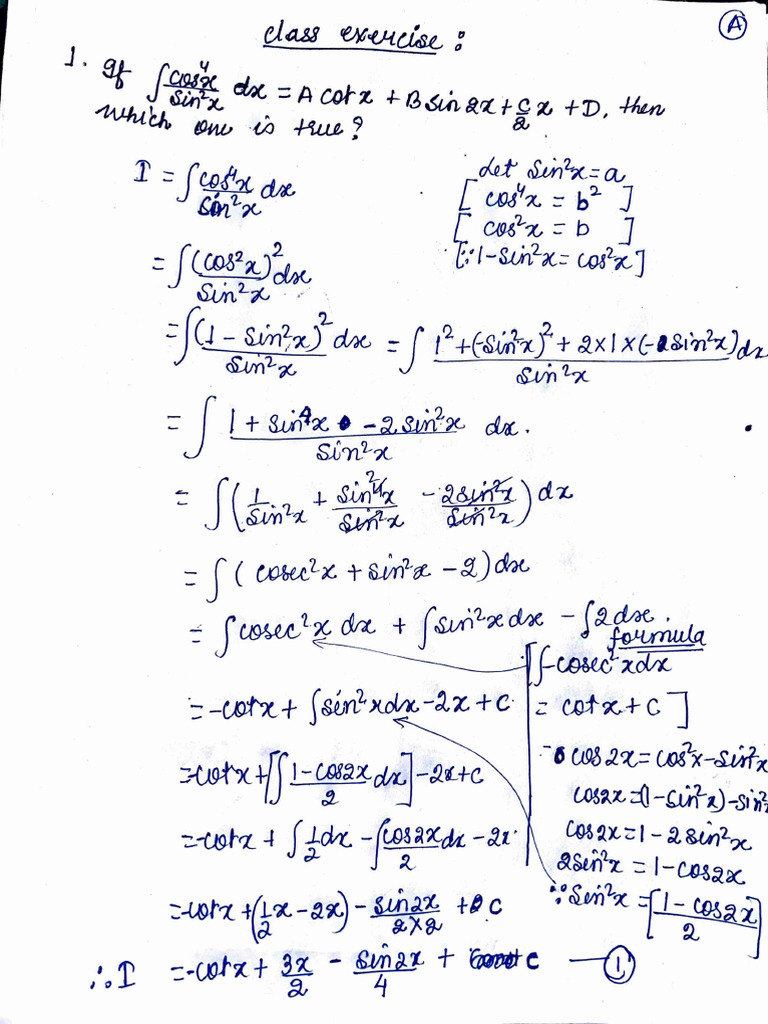 (A)
class exercise :
1. If ∫cos⁴x/sin²x dx = A cot x + B sin 2x + C/2 x + D, then
which one is true?
I = ∫cos⁴x/sin²x dx
Let sin²x = a
[cos⁴x = b²]
[cos²x = b]
[∵1-sin²x = cos²x]
= ∫(cos²x)²/sin²x dx
= ∫(1 - sin²x)²/sin²x dx = ∫ 1² + (-sin²x)² + 2×1×(-sin²x)/sin²x dx
= ∫ 1 + sin⁴x - 2 sin²x/sin²x dx.
= ∫(1/sin²x + sin⁴x/sin²x - 2sin²x/sin²x) dx
= ∫( cosec²x + sin²x - 2) dx
= ∫cosec²x dx + ∫sin²x dx - ∫2dx.
formula
[∫-cosec²x dx
= cot x + C ]
= -cot x + ∫sin²x dx - 2x + C
= -cot x + [∫ 1-cos2x/2 dx] - 2x + C
= -cot x + ∫1/2 dx - ∫cos2x/2 dx - 2x
= -cot x + (1/2 x - 2x) - sin2x/2×2 + C
cos 2x = cos²x - sin²x
cos2x = (1-sin²x) - sin²
cos2x = 1 - 2sin²x
2sin²x = 1 - cos2x
∵ sin²x = [1 - cos2x/2]
∴ I = -cot x + 3x/2 - sin2x/4 + c — (1)